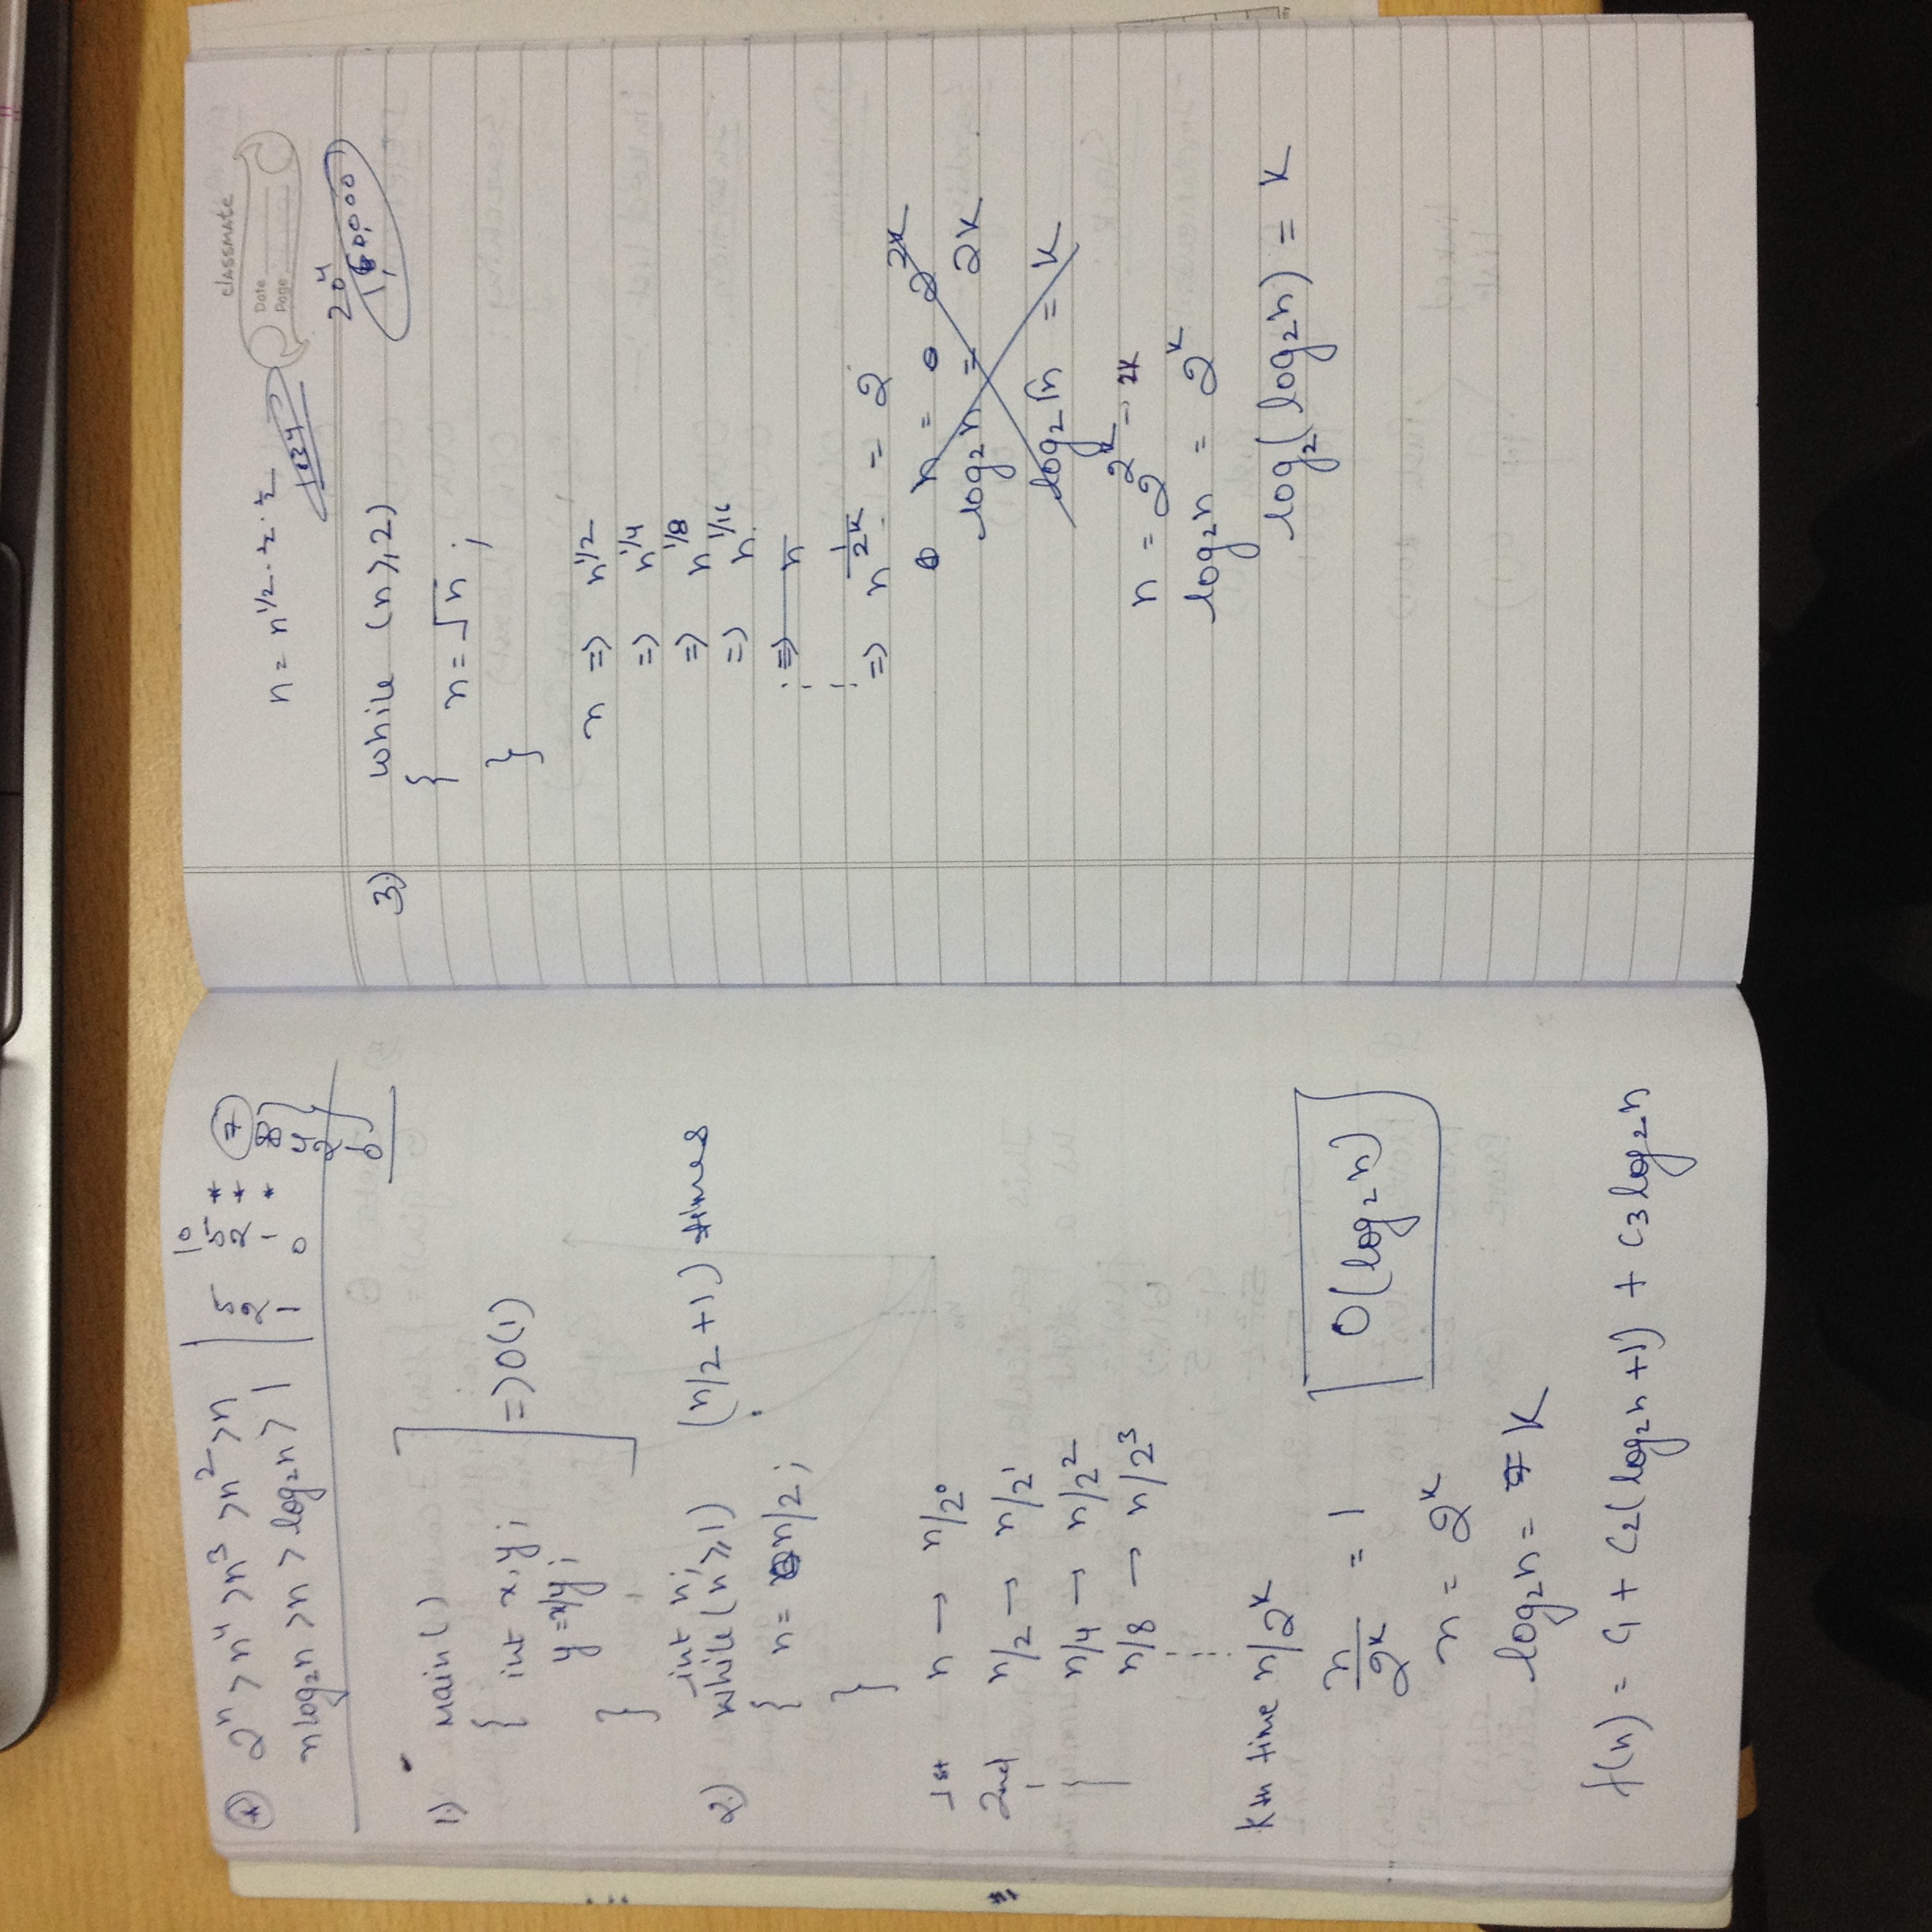 * 2ⁿ > n⁴ > n³ > n² > n
n log₂n > n > log₂n > 1
10
5 5 *
2 2 *
1 1 *
0
7
8
4
2
1) main()
{ int x, y;
y = x/y;
}
=> O(1)
2) int n;
while (n ≥ 1)
{ n = n/2;
}
(n/2 + 1) times
1st n → n/2⁰
2nd n/2 → n/2¹
n/4 → n/2²
n/8 → n/2³
kth time n/2ᵏ
n/2ᵏ = 1
n = 2ᵏ
log₂n = k
O(log₂n)
f(n) = C₁ + C₂(log₂n + 1) + C₃ log₂n
classmate
Date
Page
n = n^1/2 · ½ · ½
1024
20⁴
1,60,000
3) while (n ≥ 2)
{
n = √n ;
}
n => n^1/2
=> n^1/4
=> n^1/8
=> n^1/16
=> n
=> n^1/2ᵏ = 2
n = 2^2k
log₂n = 2k
log₂√n = k
n = 2^2ᵏ
log₂n = 2ᵏ
log₂(log₂n) = k